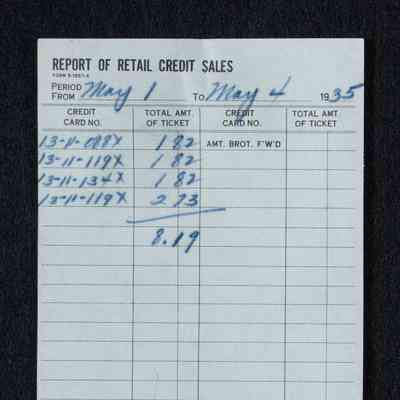 REPORT OF RETAIL CREDIT SALES
PERIOD FROM May 1 TO May 4 1935
CREDIT CARD NO. TOTAL AMT. OF TICKET CREDIT CARD NO. TOTAL AMT. OF TICKET
13-11-088X 1 82 AMT. BROT. F'W'D
13-11-119X 1 82
13-11-134X 1 82
13-11-119X 2 73
8.19